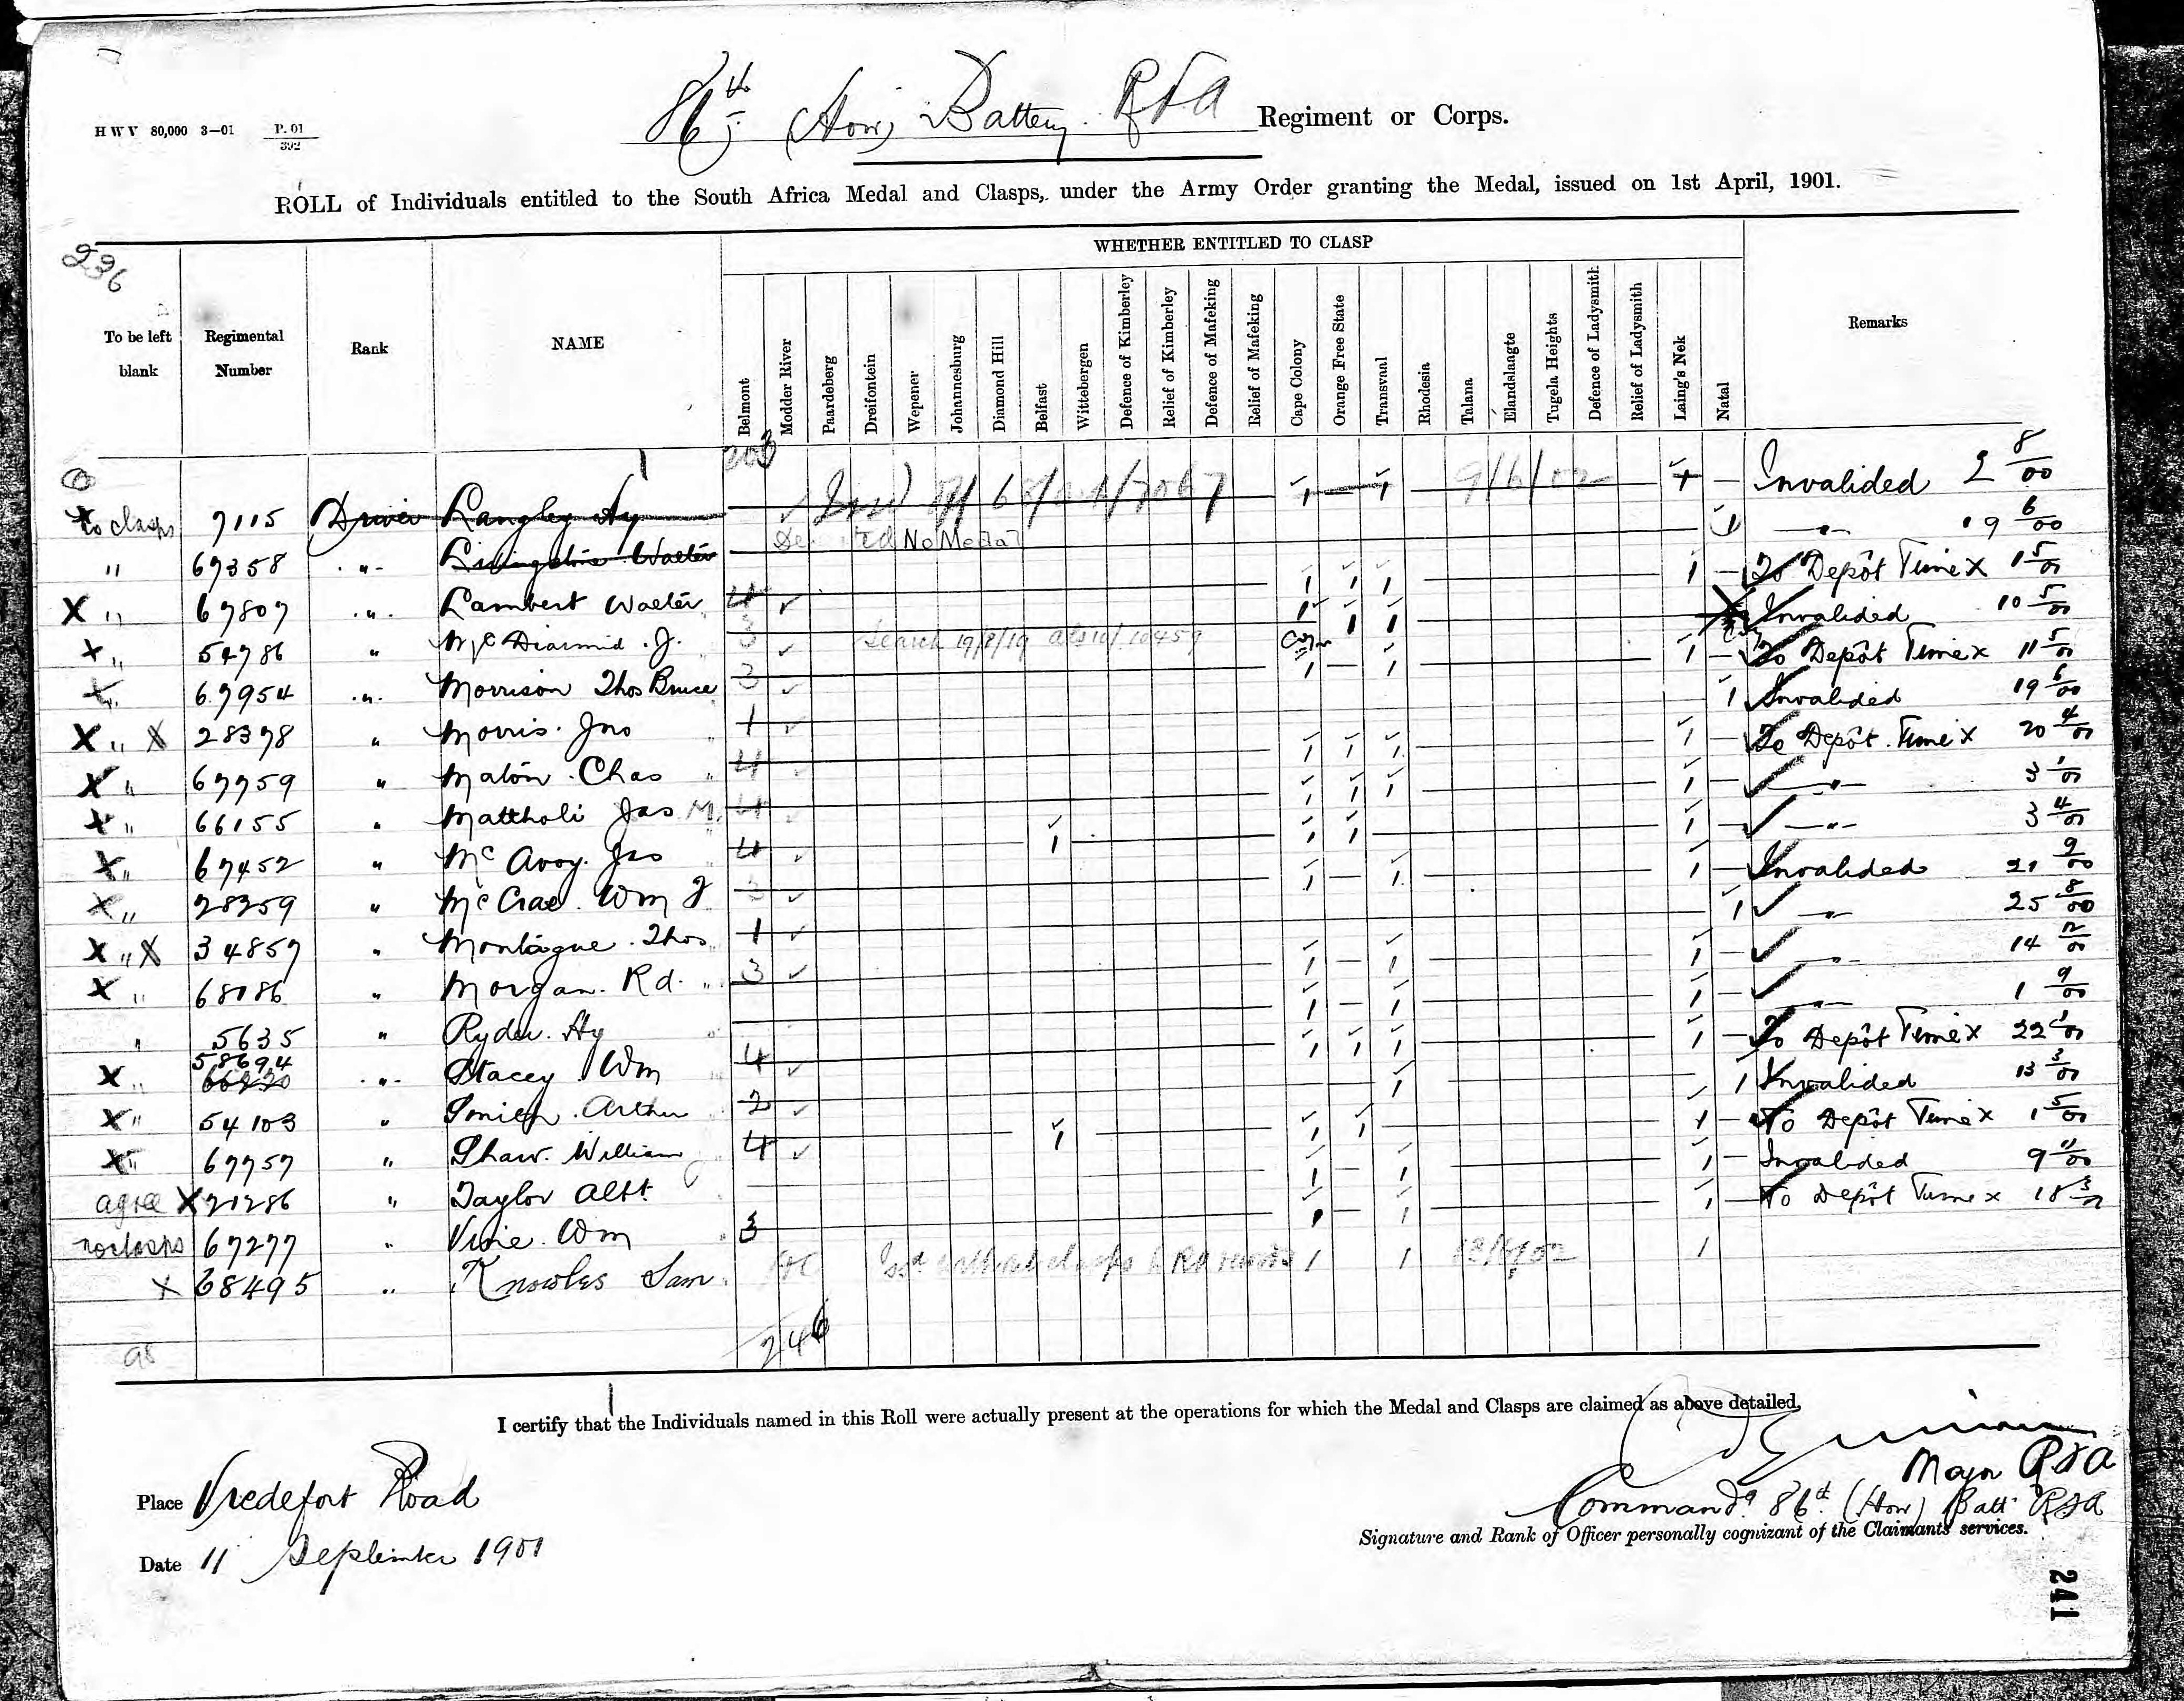 H W V 80,000 3—01 P. 01 / 392
86th (How) Battery RFA Regiment or Corps.
ROLL of Individuals entitled to the South Africa Medal and Clasps, under the Army Order granting the Medal, issued on 1st April, 1901.
236
WHETHER ENTITLED TO CLASP
To be left blank Regimental Number Rank NAME Belmont Modder River Paardeberg Dreifontein Wepener Johannesburg Diamond Hill Belfast Wittebergen Defence of Kimberley Relief of Kimberley Defence of Mafeking Relief of Mafeking Cape Colony Orange Free State Transvaal Rhodesia Talana Elandslaagte Tugela Heights Defence of Ladysmith Relief of Ladysmith Laing's Nek Natal Remarks
203
to clasps 7115 Driver Langley Hy ✓ 9/6/02 Invalided 2 8/00
" 67358 " Livingstone Walter No Medal 1 " 19 6/00
X " 67807 " Lambert Walter 4 ✓ 1 1 1 1 To Depôt Time X 1 5/01
X " 54786 " McDiarmid. J. 3 ✓ Search 19/8/19 1 1 1 Invalided 10 5/00
X " 67954 " Morrison Thos Bruce 3 ✓ 1 — 1 1 To Depôt Time X 11 5/01
X " X 28378 " Morris. Jno 1 ✓ 1 Invalided 19 6/00
X " 67759 " Maton. Chas 4 ✓ 1 1 1 1 To Depôt. Time X 20 4/01
X " 66155 " Mattholi Jas M. 4 ✓ 1 1 1 1 ✓ " 3 1/01
X " 67452 " McAvoy. Jas 4 ✓ 1 1 1 1 ✓ " 3 4/01
X " 28259 " McCrae. Wm J 3 ✓ 1 — 1 1 Invalided 21 9/00
X " X 34857 " Montague. Thos 1 ✓ 1 ✓ " 25 8/00
X " 68086 " Morgan. Rd. 3 ✓ 1 — 1 1 ✓ " 14 12/00
" 5635 " Ryder. Hy 1 — 1 1 ✓ " 1 9/00
X " 58694 66220 " Stacey Wm 4 ✓ 1 1 1 1 To Depôt Time X 22 1/01
X " 54103 " Smith. Arthur 2 ✓ 1 1 Invalided 13 3/01
X " 67757 " Shaw. William 4 ✓ 1 1 1 1 To Depôt Time X 1 5/01
agree X 21286 " Taylor Albt. 1 — 1 1 Invalided 9 11/00
no clasps 67277 " Vine. Wm 3 1 — 1 1 To Depôt Time X 18 3/01
X 68495 " Knowles Sam 1 1 1
246
I certify that the Individuals named in this Roll were actually present at the operations for which the Medal and Clasps are claimed as above detailed.
Major RFA
Place Vredefort Road
Commandg 86th (How) Batt RFA
Signature and Rank of Officer personally cognizant of the Claimants' services.
Date 11 September 1901
241